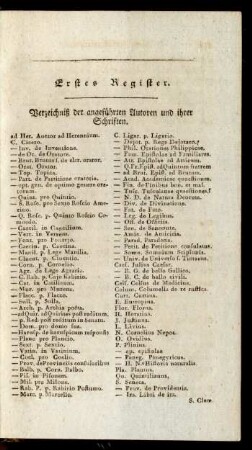 Erstes Register.
Verzeichniß der angeführten Autoren und ihrer
Schriften.
ad Her. Auctor ad Herennium.
C. Cicero.
— Inv. de Inventione.
— de Or. de Oratore.
— Brut. Brutus f. de clar. orator.
— Orat. Orator.
— Top. Topica.
— Part. de Partitione oratoria.
— opt. gen. de optimo genere oratorum.
— Quint. pro Quintio.
— S. Rosc. pro Sexto Roscio Amerino.
— Q. Rosc. p. Quinto Roscio Comoedo.
— Caecil. in Caecilium.
— Verr. in Verrem.
— Font. pro Fontejo.
— Caecin. p. Caecina.
— Manil. p. Lege Manilia.
— Cluent. p. Cluentio.
— Corn. p. Cornelio.
— Agr. de Lege Agraria
— C. Rab. p. Cajo Rabirio
— Cat. in Catilinam.
— Mur. pro Murena.
— Flacc. p. Flacco.
— Sull. p. Sulla.
— Arch. p. Archia poëta.
— ad Quir. ad Quirites post reditum.
— p. Red. post reditum in Senatu.
— Dom. pro domo sua.
— Harusp. de haruspicum responsis
— Planc. pro Plancio.
— Sext. p. Sextio.
— Vatin. in Vatinium.
— Coel. p. Coelio.
— Prov. de Provinciis consularibus
— Balb. p. Corn. Balbo.
— Pis. in Pisonem.
— Mil. pro Milone.
— Rab. P. p. Rabirio Postumo
— Marc. p. Marcello.
C. Ligar. p. Ligario.
— Dejot. p. Rege Dejotaro.
— Phil. Orationes Philippicae.
— Fam. Epistolae ad Familiares.
— Att. Epistolae ad Atticum.
— Q. Fr. Epist. ad Quintum fratrem
— ad Brut. Epist. ad Brutum.
— Acad. Academicae quaestiones.
— Fin. de Finibus bon. et mal.
— Tusc. Tusculanae quaestiones.
— N. D. de Natura Deorum.
— Div. de Divinatione.
— Fat. de Fato.
— Leg. de Legibus.
— Off. de Officiis.
— Sen. de Senectute.
— Amic. de Amicitia.
— Parad. Paradoxa.
— Petit. de Petitione consulatus.
— Somn. Somnium Scipionis.
— Univ. de Universitate
Caes. Julius Caesar.
— B. G. de bello Gallico.
— B. C. de bello civili.
Cels. Celsus de Medicina.
Colum. Columella de re rustica.
Curt. Curtius.
E. Europius.
F. Florus.
H. Horatius.
J. Justinus.
L. Livius.
N. Cornelius Nepos.
O. Ovidius.
P. Plinius.
— ep. epistolae
— Paneg. Panegyricus.
— H. N. Historia naturalis.
Pla. Plautus.
Qu. Quintilianus.
S. Seneca.
— Prov. de Providentia.
— Ira. Libri de ira.
S. Clem.